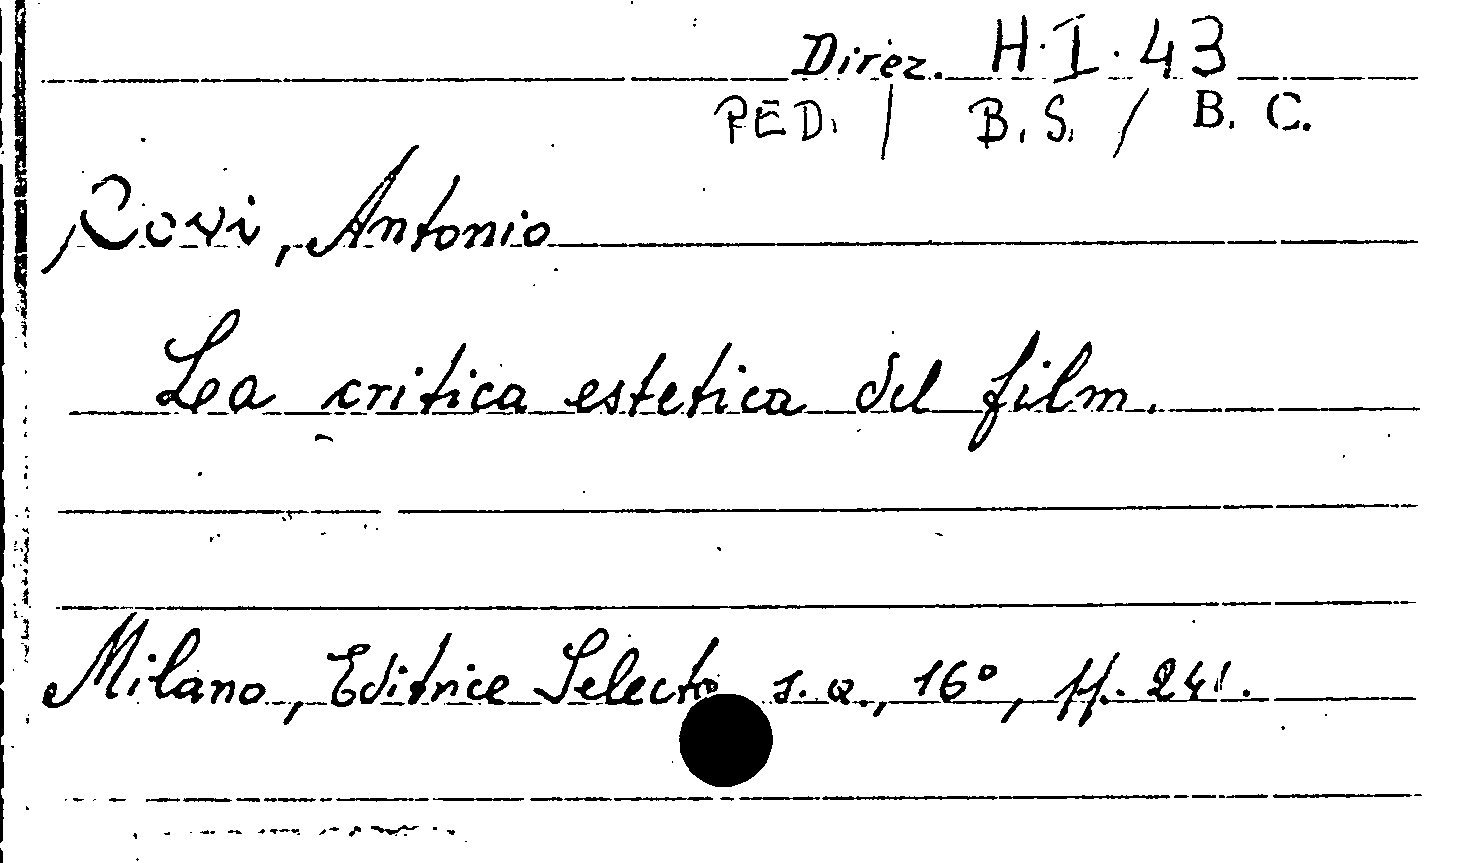 Direz. H.I.43
PED. / B.S. / B. C.
Rovi, Antonio
La critica estetica del film.
Milano, Editrice Selecta s.a., 16°, pp. 241.